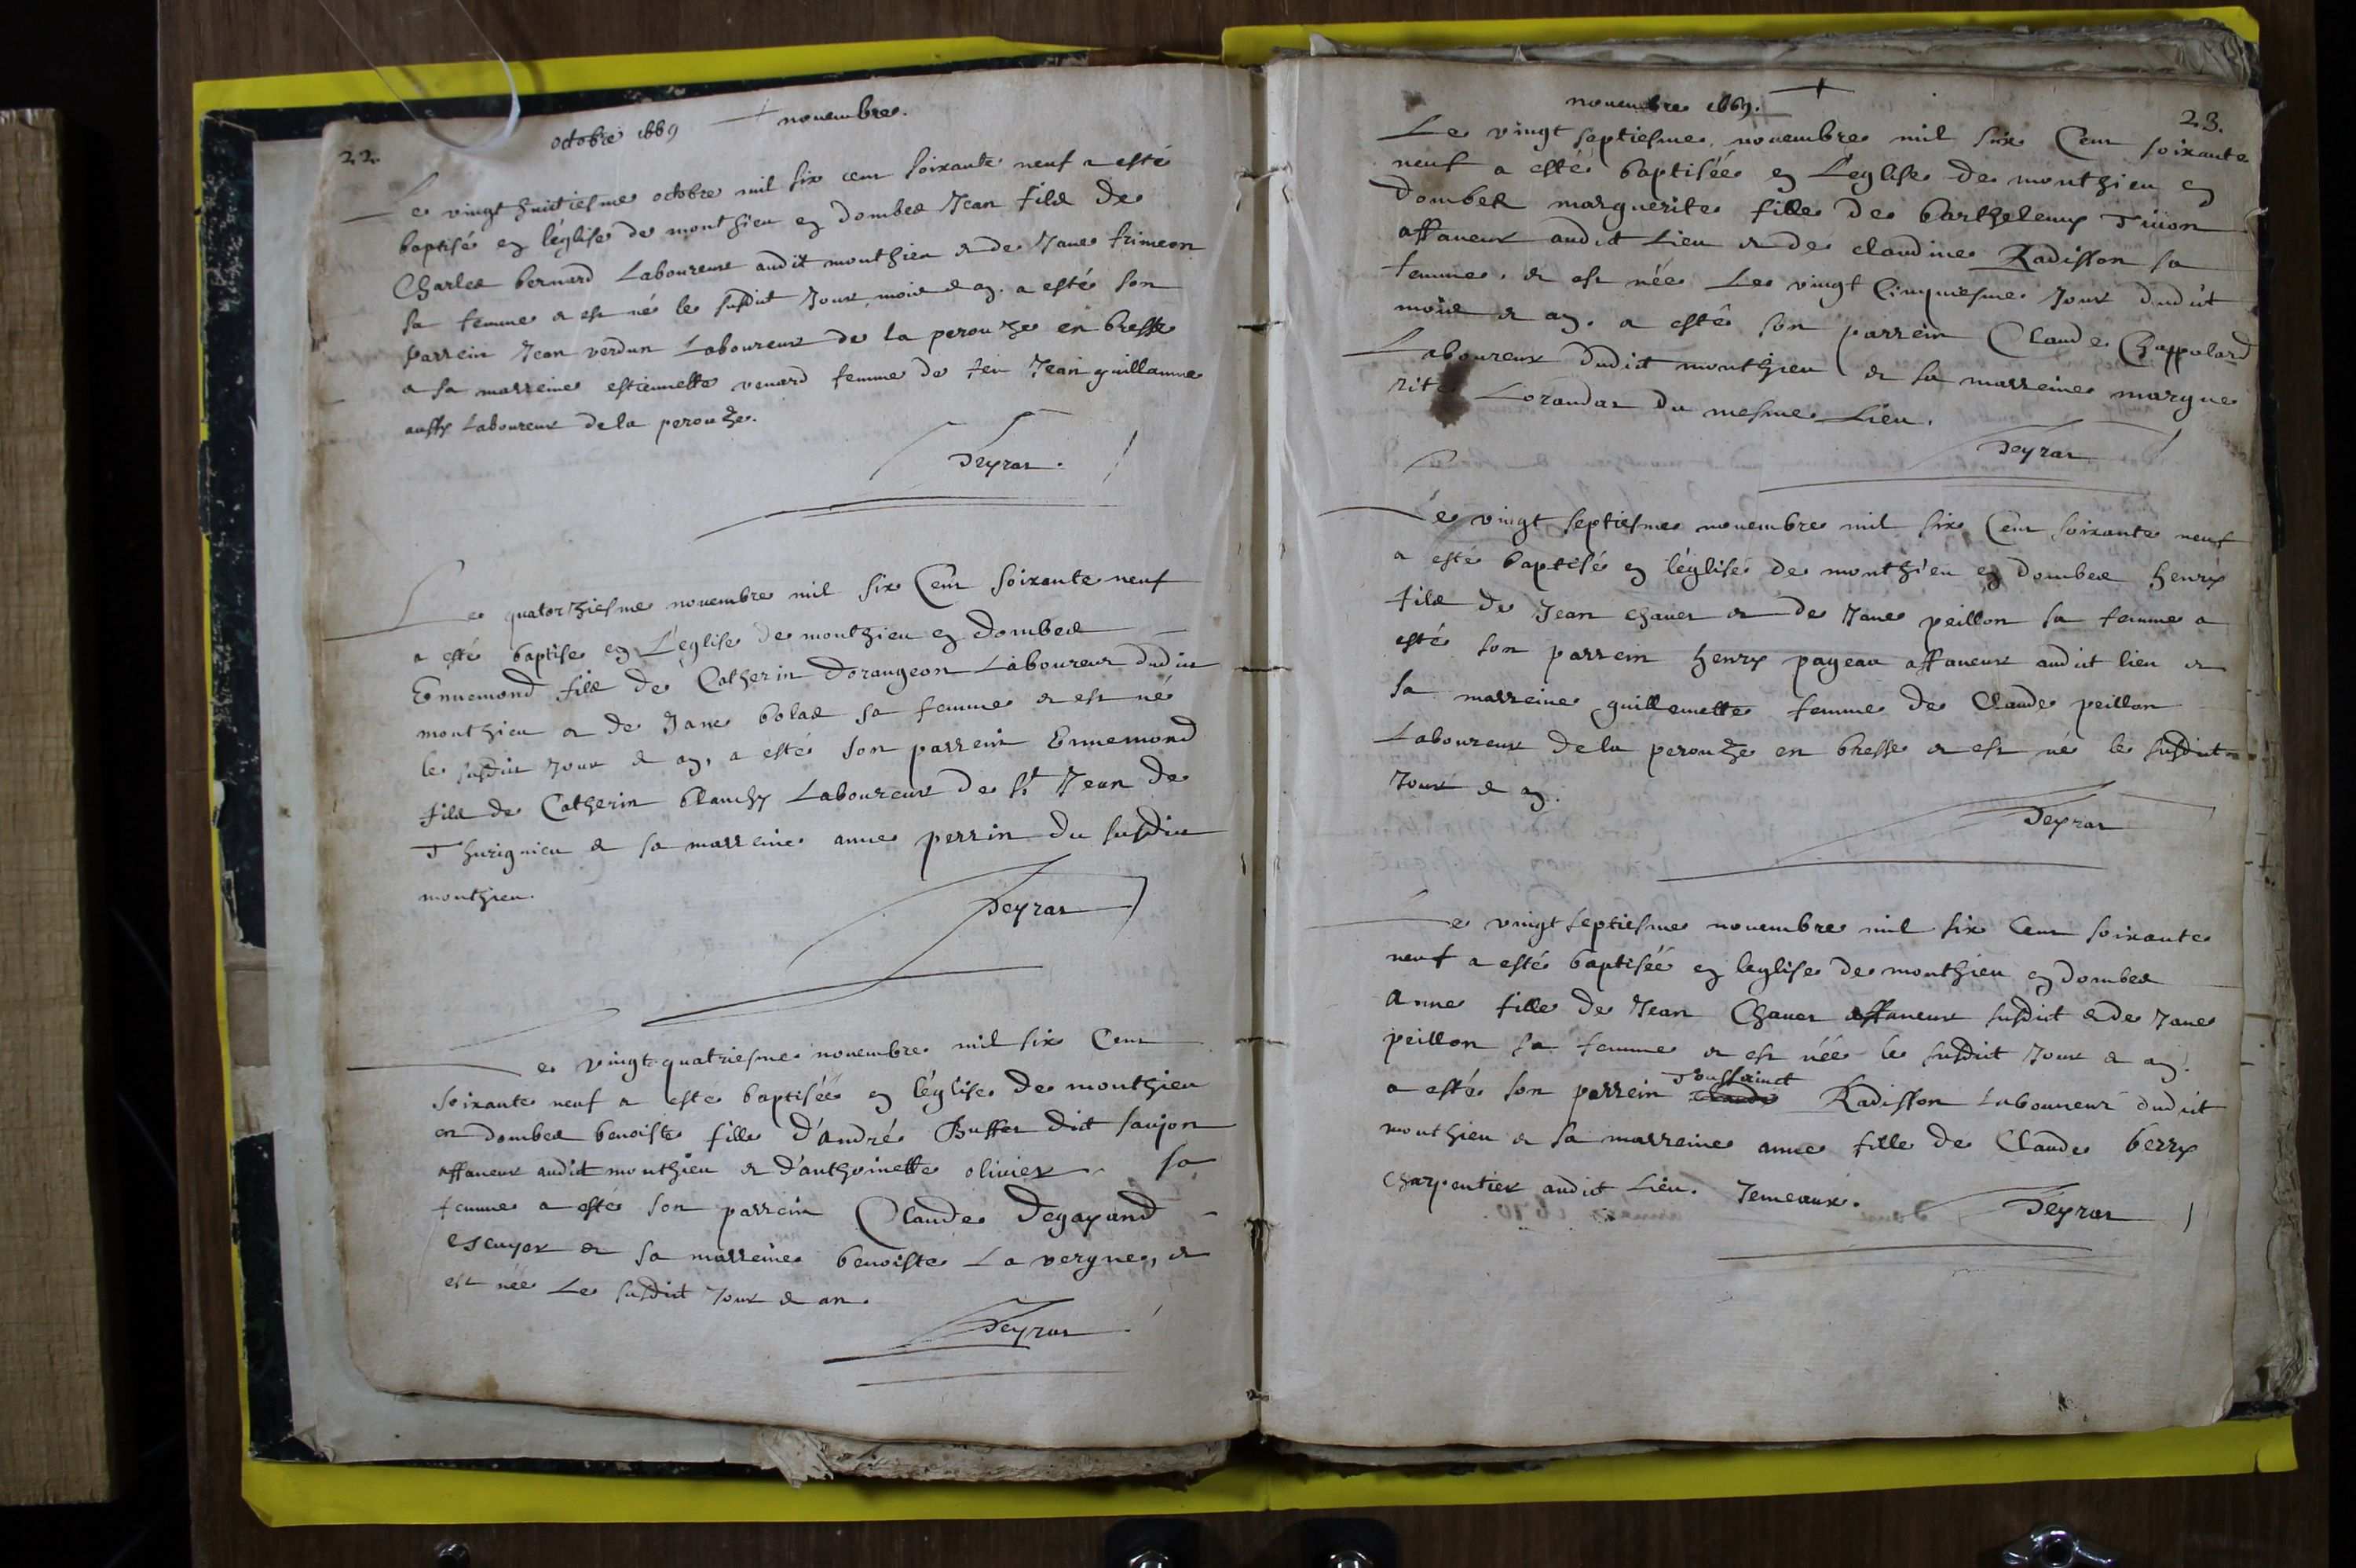 22.
octobre 1669 novembre.
Le vingt huictiesme octobre mil six cent soixante neuf a esté
baptisé en léglise de monthieu en dombes Jean fils de
Charles bernard Laboureur audit monthieu & de Jane trimeon
sa femme & est né le susdict Jour, mois & an. a esté son
parrein Jean verdun Laboureur de la perouze en bresse
& sa marreine estiennette venard femme de feu Jean guillaume
aussy Laboureur de la perouze.
Deyras.
Le quatorziesme novembre mil six Cent soixante neuf
a esté baptise en L'eglise de monthieu en dombes
Ennemond fils de Catherin Dorangeon Laboureur dudict
monthieu & de Jane bolas sa femme & est né
le susdict Jour & an, a esté son parrein Ennemond
fils de Catherin blanchy Laboureur de St Jean de
Thurignieu & sa marreine anne perrin du susdict
monthieu.
Deyras
Le vingt-quatriesme novembre mil six Cent
soixante neuf a esté baptisée en léglise de monthieu
en dombes benoiste fille d'andré Buffet dict saujon
affaneur audict monthieu & d'anthoinette olivier sa
femme a esté son parrein Claude Degayand
escuyer & sa marreine benoiste La vergne, &
est née Le susdict Jour & an.
Deyras
novembre 1669.
23.
Le vingt septiesme novembre mil six Cent soixante
neuf a esté baptisée en L'eglise de monthieu en
Dombes marguerite fille de barthelemy Tivion
affaneur audict Lieu & de claudine Radisson sa
femme. & est née Le vingt Cinquiesme Jour dudict
mois & an. a esté son parrein Claude Chappolard
Laboureur dudict monthieu & sa marreine margue
rite Lorandas du mesme Lieu.
Deyras
Le vingt septiesme novembre mil six Cent soixante neuf
a esté baptisé en léglise de monthieu en dombes henry
fils de Jean chanet & de Jane peillon sa femme a
esté son parrein henry pageau affaneur audict lieu &
sa marreine guillemette femme de Claude peillon
Laboureur de la perouze en bresse & est né le susdict
Jour & an.
Deyras
Le vingt septiesme novembre mil six Cent soixante
neuf a esté baptisée en leglise de monthieu en dombes
Anne fille de Jean Chanet affaneur susdict & de Jane
peillon sa femme & est née le susdict Jour & an.
a esté son parrein Claude Toussainct Radisson Laboureur dudict
monthieu & sa marreine anne fille de Claude berry
Charpentier audict Lieu. Jemeaux.
Deyras